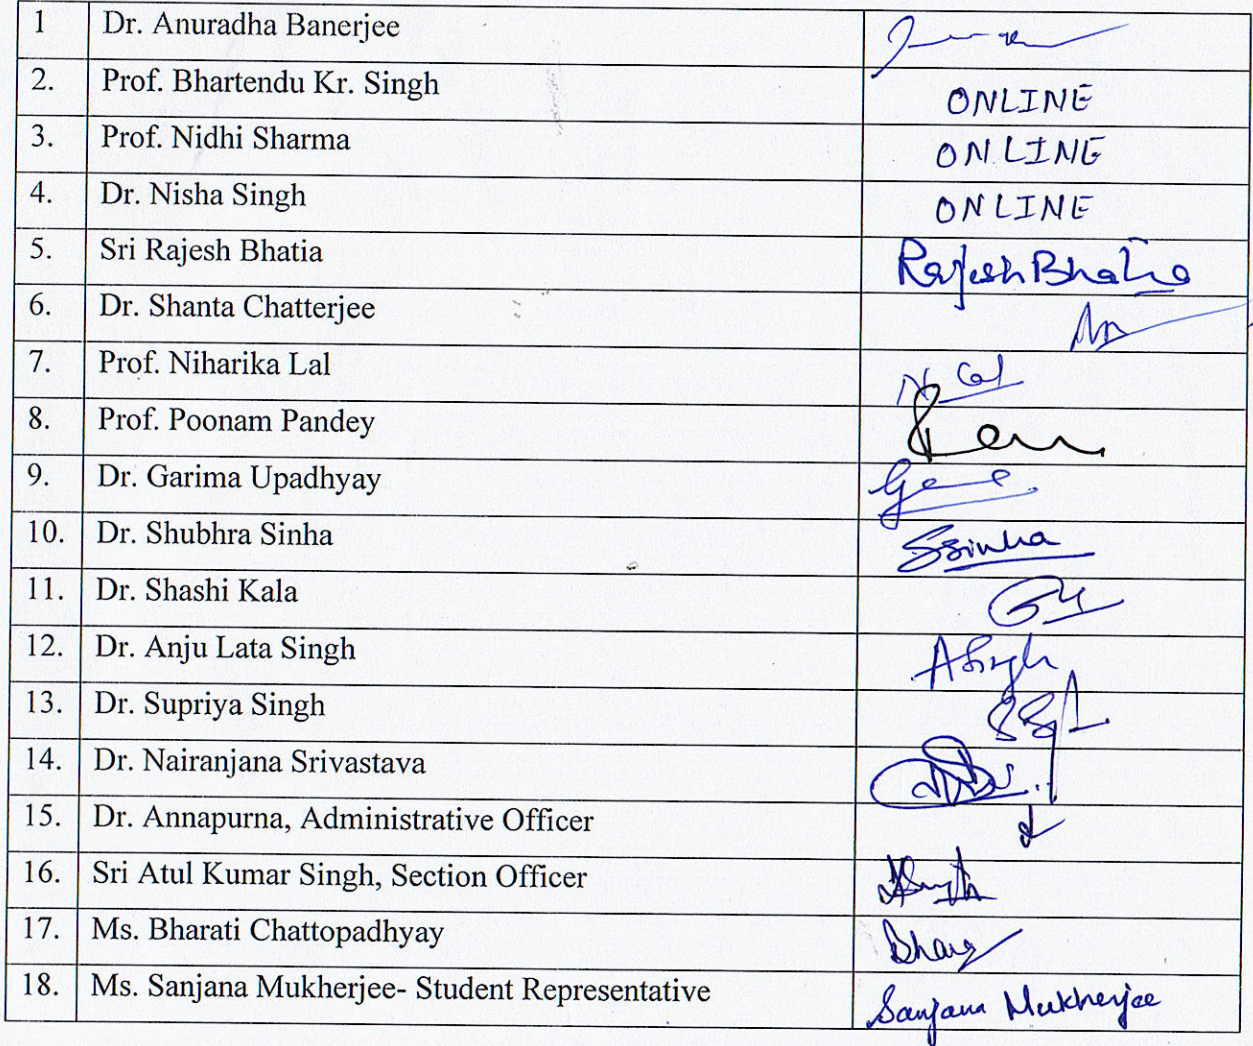 1 Dr. Anuradha Banerjee
2. Prof. Bhartendu Kr. Singh ONLINE
3. Prof. Nidhi Sharma ONLINE
4. Dr. Nisha Singh ONLINE
5. Sri Rajesh Bhatia Rajesh Bhatia
6. Dr. Shanta Chatterjee
7. Prof. Niharika Lal
8. Prof. Poonam Pandey
9. Dr. Garima Upadhyay
10. Dr. Shubhra Sinha SSinha
11. Dr. Shashi Kala
12. Dr. Anju Lata Singh ASingh
13. Dr. Supriya Singh
14. Dr. Nairanjana Srivastava
15. Dr. Annapurna, Administrative Officer
16. Sri Atul Kumar Singh, Section Officer
17. Ms. Bharati Chattopadhyay
18. Ms. Sanjana Mukherjee- Student Representative Sanjana Mukherjee